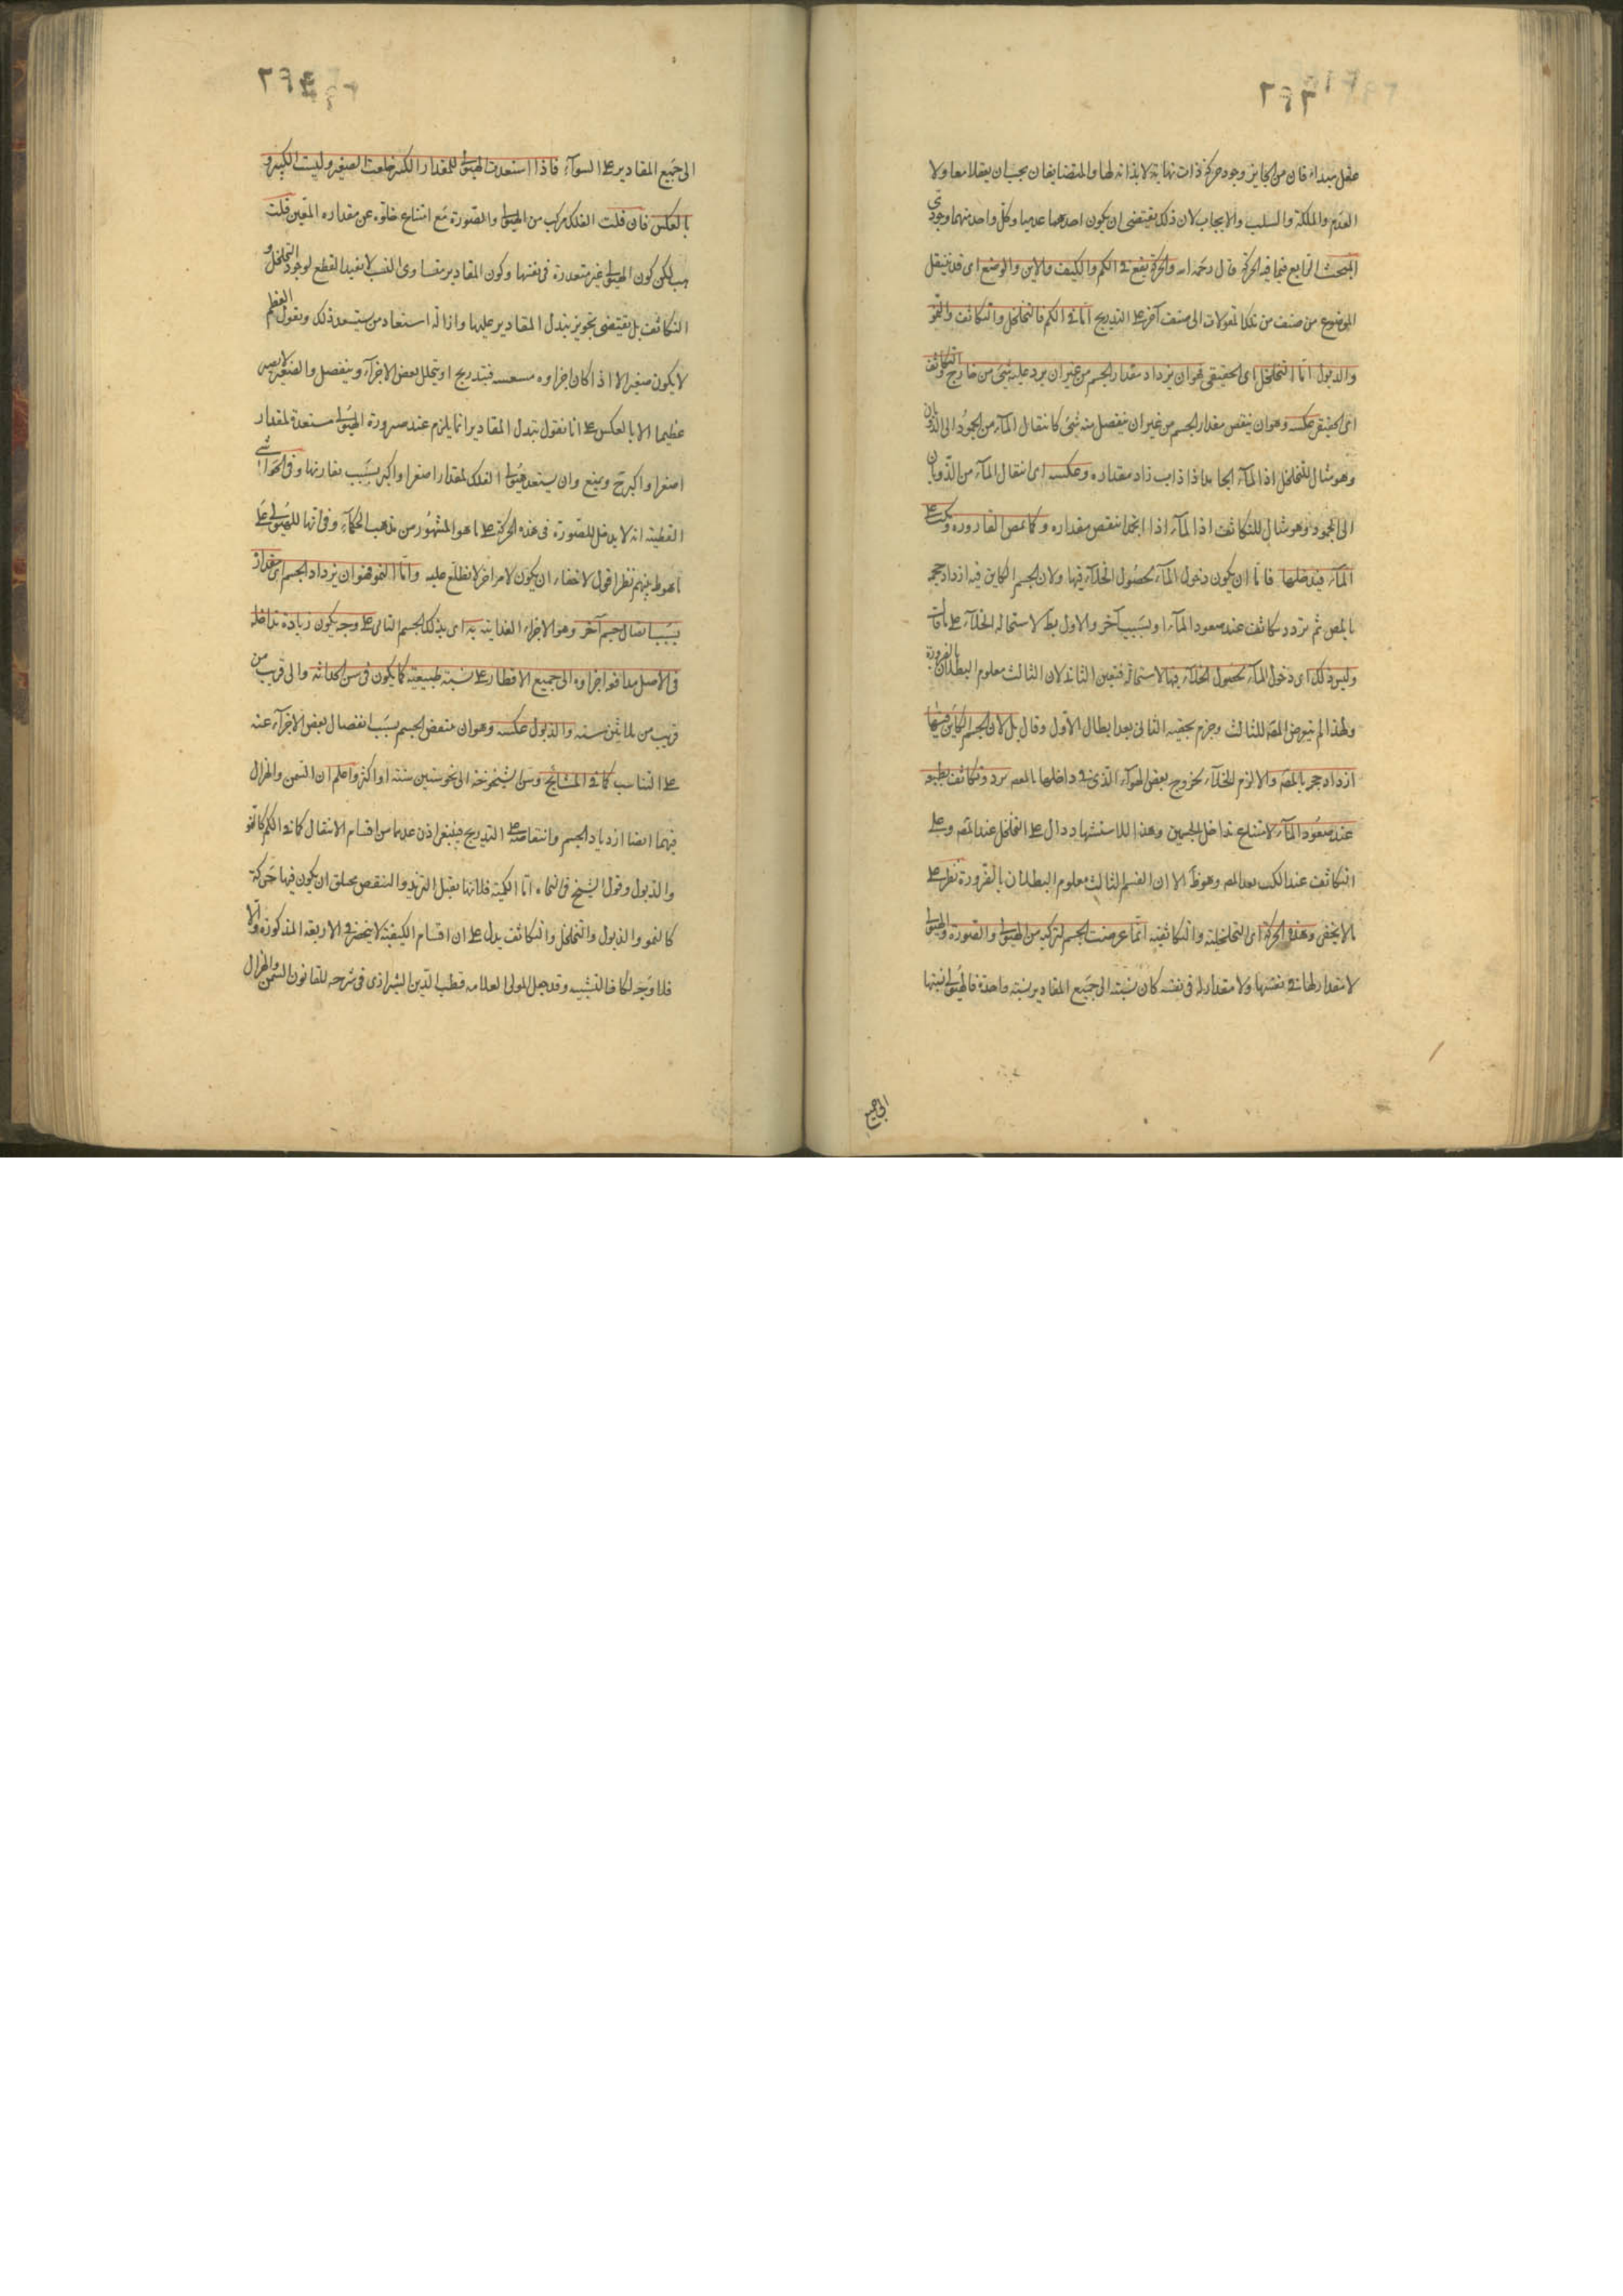 ٢٤٢
عقل مبداء فان من الجايز وجود حركة ذات نهاية لا بداية لها والمتضايفان يجب ان يعقلا معا ولا
العدم والملكة والسلب والايجاب لان ذلك يقتضى ان يكون احدهما عدميا وكل واحد منهما وجودى
المبحث الرابع فيما فيه الحركة قال رحمه الله والحركة يقع فى الكم والكيف والاين والوضع اى قد ينتقل
الموضوع من صنف من تلك المقولات الى صنف آخر على التدريج اما فى الكم فالتخلخل والتكاثف والنمو
والذبول اما التخلخل اى الحقيقى فهو ان يزداد مقدار الجسم من غير ان يرد عليه شئ من خارج والتكاثف
اى الحقيقى عكسه وهو ان ينقص مقدار الجسم من غير ان ينفصل منه شئ كانتقال المآء من الجمود الى الذوبان
وهو مثال للتخلخل اذ المآء الجامد اذا ذاب زاد مقداره وعكسه اى انتقال المآء من الذوبان
الى الجمود وهو مثال للتكاثف اذ المآء اذا انجمد انتقص مقداره وكما يمص القاروره وتكب على
المآء فيدخلها فاما ان يكون دخول المآء لحصول الخلآء فيها ولان الجسم الكاين فيه ازداد حجمه
بالمص ثم تكاثف عند صعود المآء او بسبب آخر والاول بط لاستحالة الخلآء على ما فات
وليس ذلك اى دخول المآء لحصول الخلآء فيها لاستحالته فتعين الثانى لان الثالث معلوم البطلان بالضرورة
ولهذا لم يتعرض المص للثالث وجزم بحقيه الثانى بعد ابطال الاول وقال بل لان الجسم الكاين فيها
ازداد حجمه بالمص والا لزم الخلآء بخروج بعض الهوآء الذى فى داخلها بالمص وتكاثف بطبعه
عند صعود المآء لامتناع تداخل الجسمين وهذا الاستشهاد دال على التخلخل عند المص وعلى
التكاثف عند الكب بعد المص وهو ظ الا ان القسم الثالث معلوم البطلان بالضرورة نظر على
ما لا يخفى وهذه الحركة اى التخلخلية والتكاثفية انما عرضت للجسم لتركبه من الهيولى والصورة والهيولى
لا مقدار لها فى نفسها وما لا مقدار له فى نفسه كان نسبته الى جميع المقادير نسبة واحدة فالهيولى نسبتها
الى جميع
الى جميع المقادير على السوآء فاذا استعدت الهيولى للمقدار الكبير خلعت الصغير ولبست الكبير و
بالعكس فان قلت الفلك مركب من الهيولى والصورة مع امتناع خلوه عن مقداره المعين قلت
هب لكن كون الهيولى غير متقدرة فى نفسها وكون المقادير متساوى النسب لا يفيد القطع لوجود التخلخل و
التكاثف بل يقتضى تجويز تبدل المقادير عليها وازالة استبعاد من يستبعد ذلك ويقول العظيم
لا يكون صغيرا الا اذا كان اجزاوه فيتدرج او يتحلل بعض الاجزآء وينفصل والصغير لا يصير
عظيما الا بالعكس على انا نقول تبدل المقادير انما يلزم عند صيرورة الهيولى مستعدة لمقدار
اصغر او اكبر ح ويمنع وان يستعد هيولى الفلك لمقدار اصغر او اكبر بسبب يقارنها وفى الحواشى
القطبية انه لا يدخل للصورة فى هذه الحركة على ما هو المشهور من مذهب الحكمآء وفى انها للهيولى على
ما هو بينهم نظر اقول لا خفاء ان يكون لامر اخر لا نطلع عليه واما النمو فهو ان يزداد الجسم اى مقداره
بسبب اتصال جسم آخر وهو الاجزاء الغذايية به اى بذلك الجسم النامى على وجه يكون زيادة مداخلة
فى الاصل مدافعة اجزاوه الى جميع الاقطار على نسبة طبيعية كما يكون فى سن الحداثة والى قريب من
قريب من ثلاثين سنة والذبول عكسه وهو ان ينقص الجسم بسبب انفصال بعض الاجزآء عنه
على التناسب كما فى المشايخ وسن الشيخوخة الى نحو ستين سنة او اكثر واعلم ان السمن والهزال
فيهما ايضا ازدياد الجسم وانتقاصه على التدريج فينبغى اذن عدهما من اقسام الانتقال كما فى الكم كالنمو
والذبول وقول الشيخ فى النجاه اما الكمية فلانها يقبل التزيد والتنقص فخليق ان يكون فيها حركة
كالنمو والذبول والتخلخل والتكاثف يدل على ان اقسام الكيفية لا ينحصر فى الاربعة المذكورة والا
فلا وجه لكاف التشبيه وقد جعل المولى العلامه قطب الدين الشيرازى فى شرحه للقانون السمن والهزال